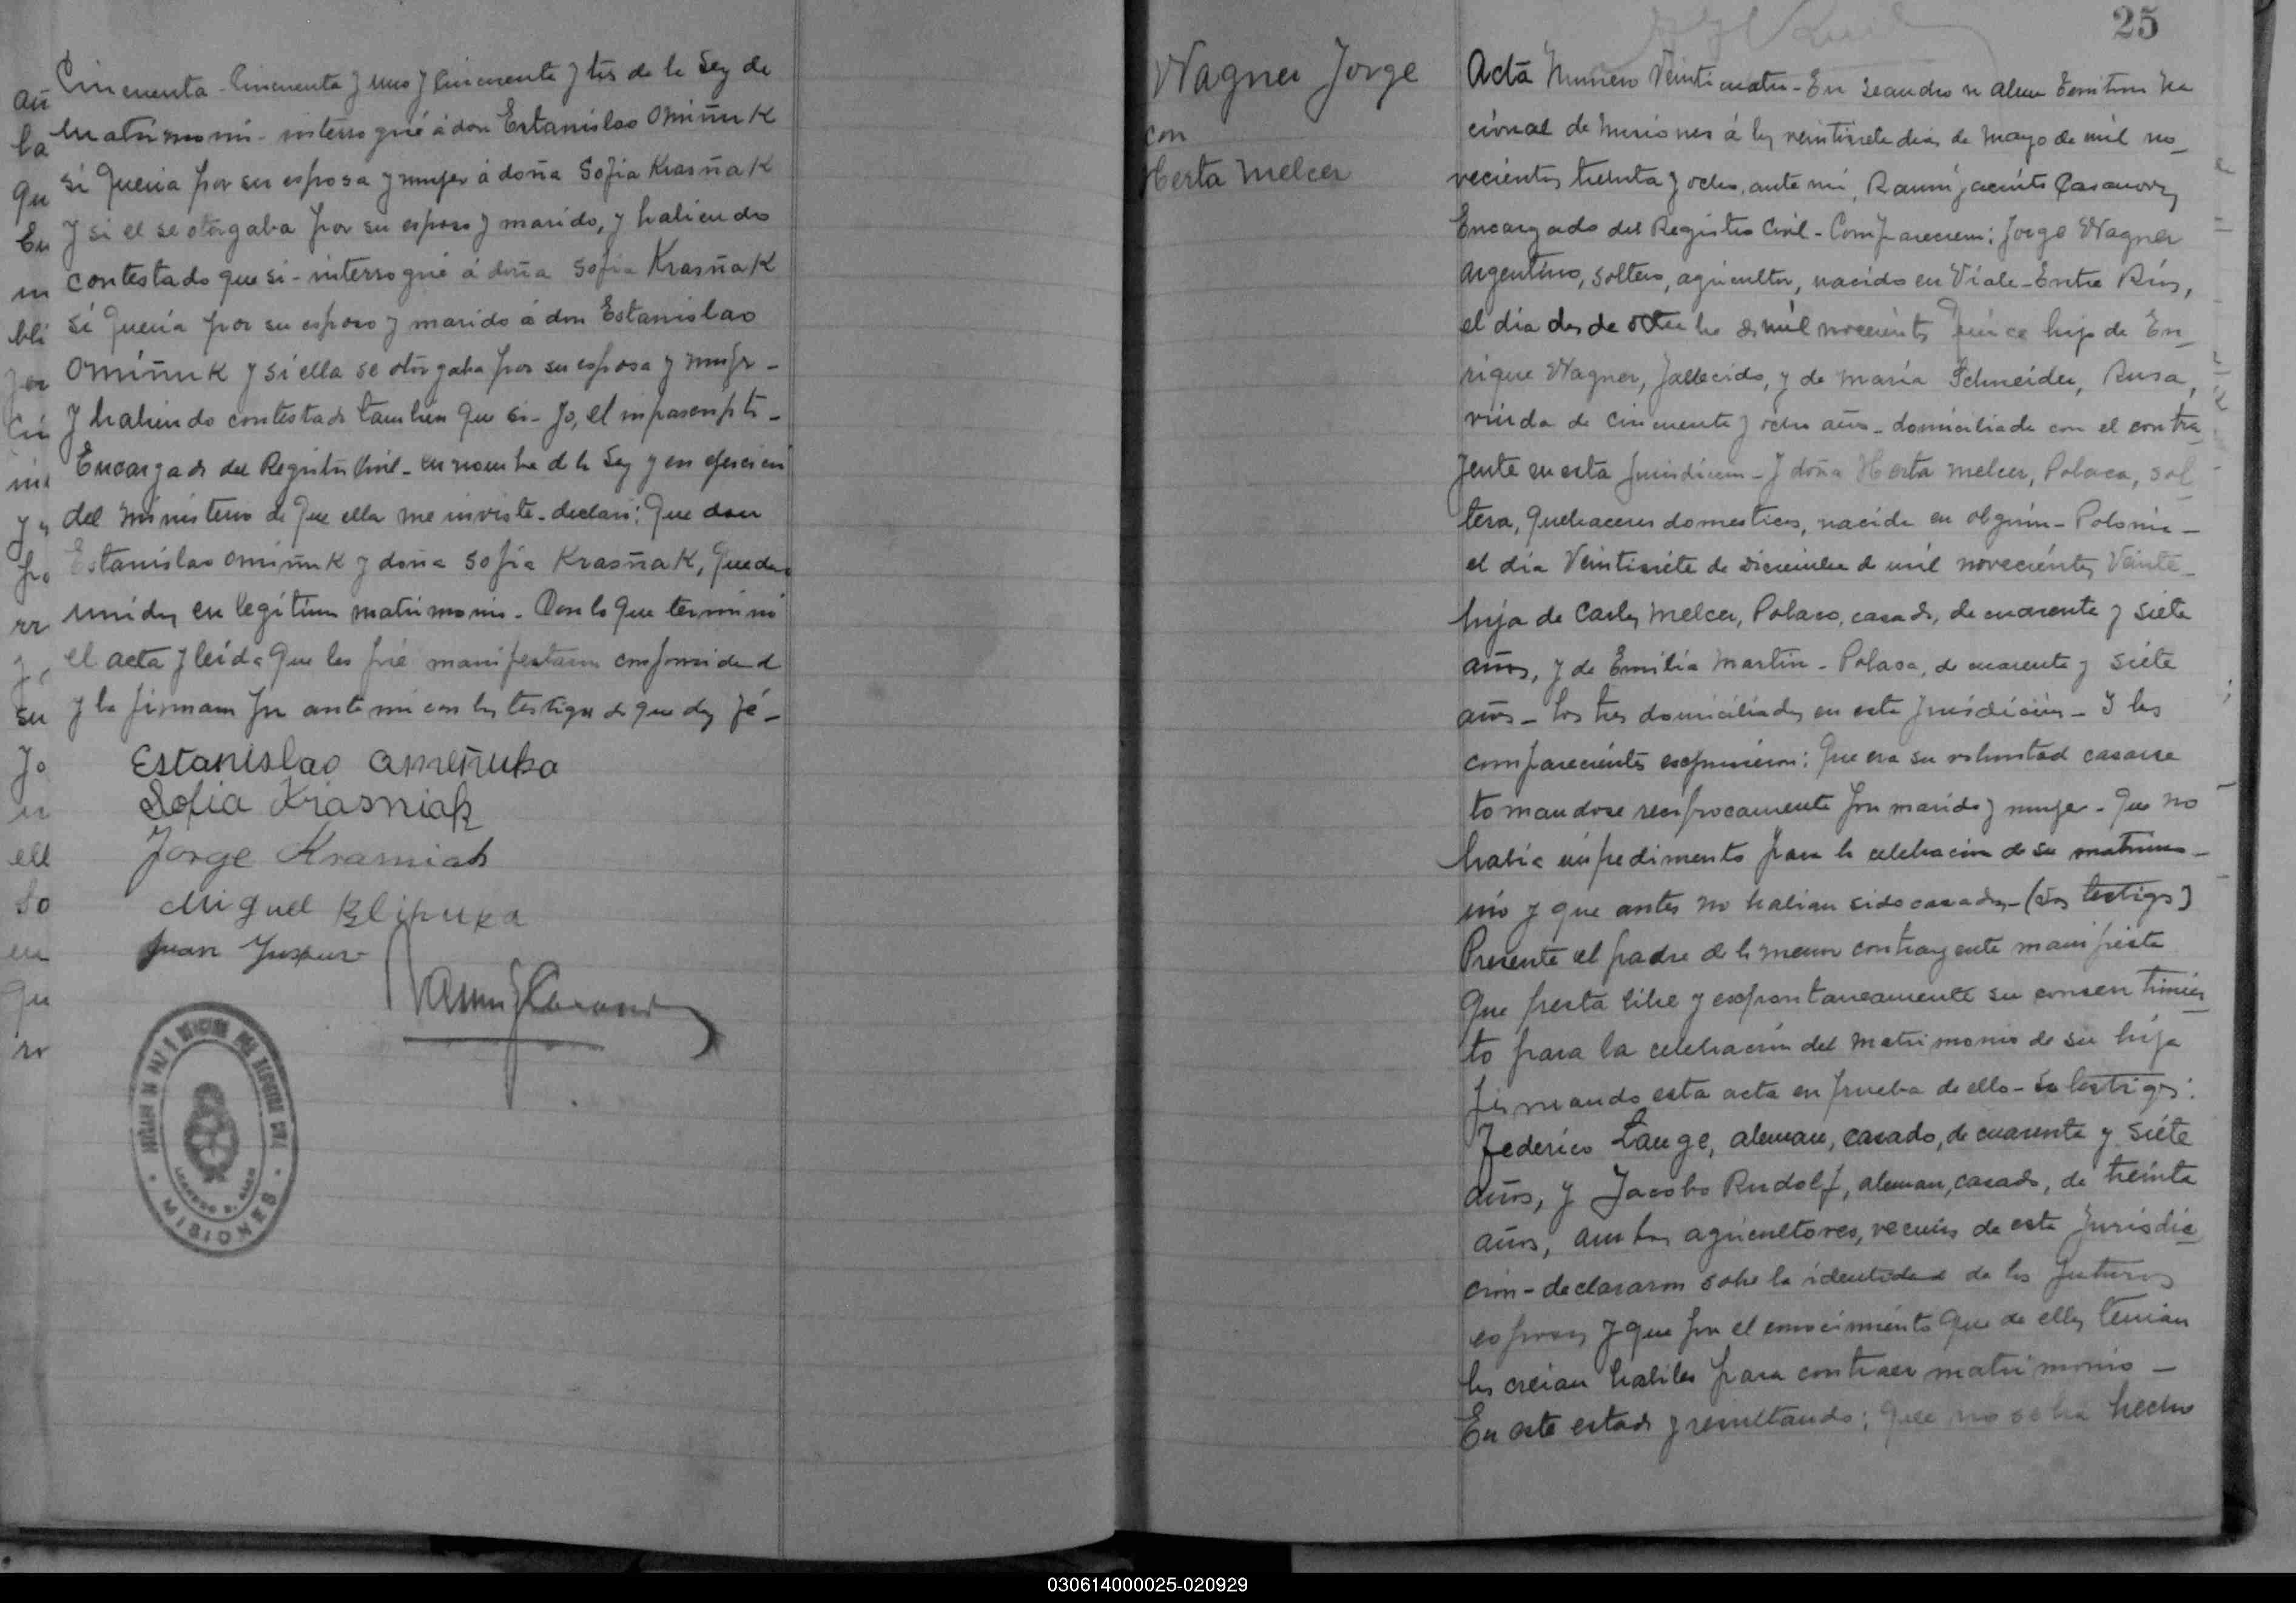 Cincuenta - Cincuenta y uno y Cincuenta y tres de la Ley de
Matrimonio - interrogué á don Estanislao Omiñuk
si queria por su esposa y mujer á doña Sofia Krasñak
y si el se otorgaba por su esposo y marido, y habiendo
contestado que si - interrogué á doña Sofia Krasñak
si queria por su esposo y marido á don Estanislao
Omiñuk y si ella se otorgaba por su esposa y mujer -
y habiendo contestado tambien que si - yo, el infrascripto -
Encargado del Registro Civil - en nombre de la Ley y en ejercicio
del Ministerio de que ella me inviste - declaré: que don
Estanislao Omiñuk y doña Sofia Krasñak, quedan
unidos en legítimo matrimonio - Con lo que terminó
el acta y leída que les fué manifestaron conformidad
y la firman por ante mi con los testigos de que doy fé -
Estanislao Omeñuka
Sofia Krasniak
Jorge Krasniak
Miguel Klipuka
Juan
MISIONES
25
Wagner Jorge
con
Herta Melcer
Acta Numero Veinticuatro - En Leandro N Alem Territorio Na
cional de Misiones á los veintisiete dias de Mayo de mil no_
vecientos treinta y ocho, ante mi, Ramón Casanova
Encargado del Registro Civil - Comparecen: Jorge Wagner
Argentino, soltero, agricultor, nacido en Viale - Entre Rios,
el día dos de octubre de mil novecientos quince hijo de En_
rique Wagner, fallecido, y de María Schneider, Rusa,
viuda de cincuenta y ocho años - domiciliada con el contra_
yente en esta jurisdicion - Y doña Herta Melcer, Polaca, sol_
tera, quehaceres domesticos, nacida en - Polonia -
el día Veintisiete de Diciembre de mil novecientos Veinte -
hija de Carlos Melcer, Polaco, casado, de cuarenta y siete
años, y de Emilia Martin - Polaca, de cuarenta y siete
años - los tres domiciliados en esta jurisdicion - Y los
comparecientes expusieron: Que era su voluntad casarse
tomandose reciprocamente por marido y mujer - Que no
había impedimento para la celebracion de su matrimo_
nio y que antes no habian sido casados - (dos testigos)
Presente el padre de la menor contrayente manifiesta
Que presta libre y expontaneamente su consentimien_
to para la celebracion del matrimonio de su hija
firmando esta acta en prueba de ello - Los testigos:
Federico Lange, aleman, casado, de cuarenta y siete
años, y Jacobo Rudolf, aleman, casado, de treinta
años, ambos agricultores, vecinos de esta Jurisdic_
cion - declararon sobre la identidad de los futuros
esposos y que por el conocimiento que de ellos tenian
los creian habiles para contraer matrimonio -
En este estado y resultando: Que no se ha hecho
030614000025-020929